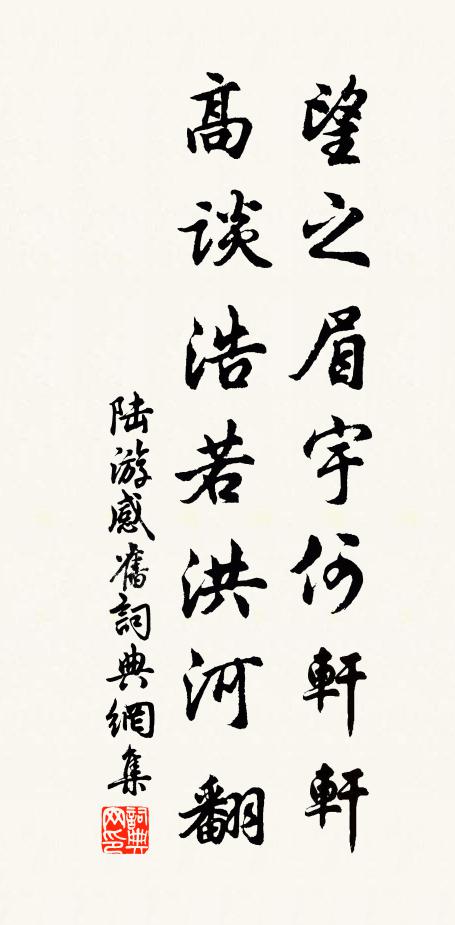 望之眉宇何軒軒
高談浩若洪河翻
陆游感舊詞典網集
詞典网印